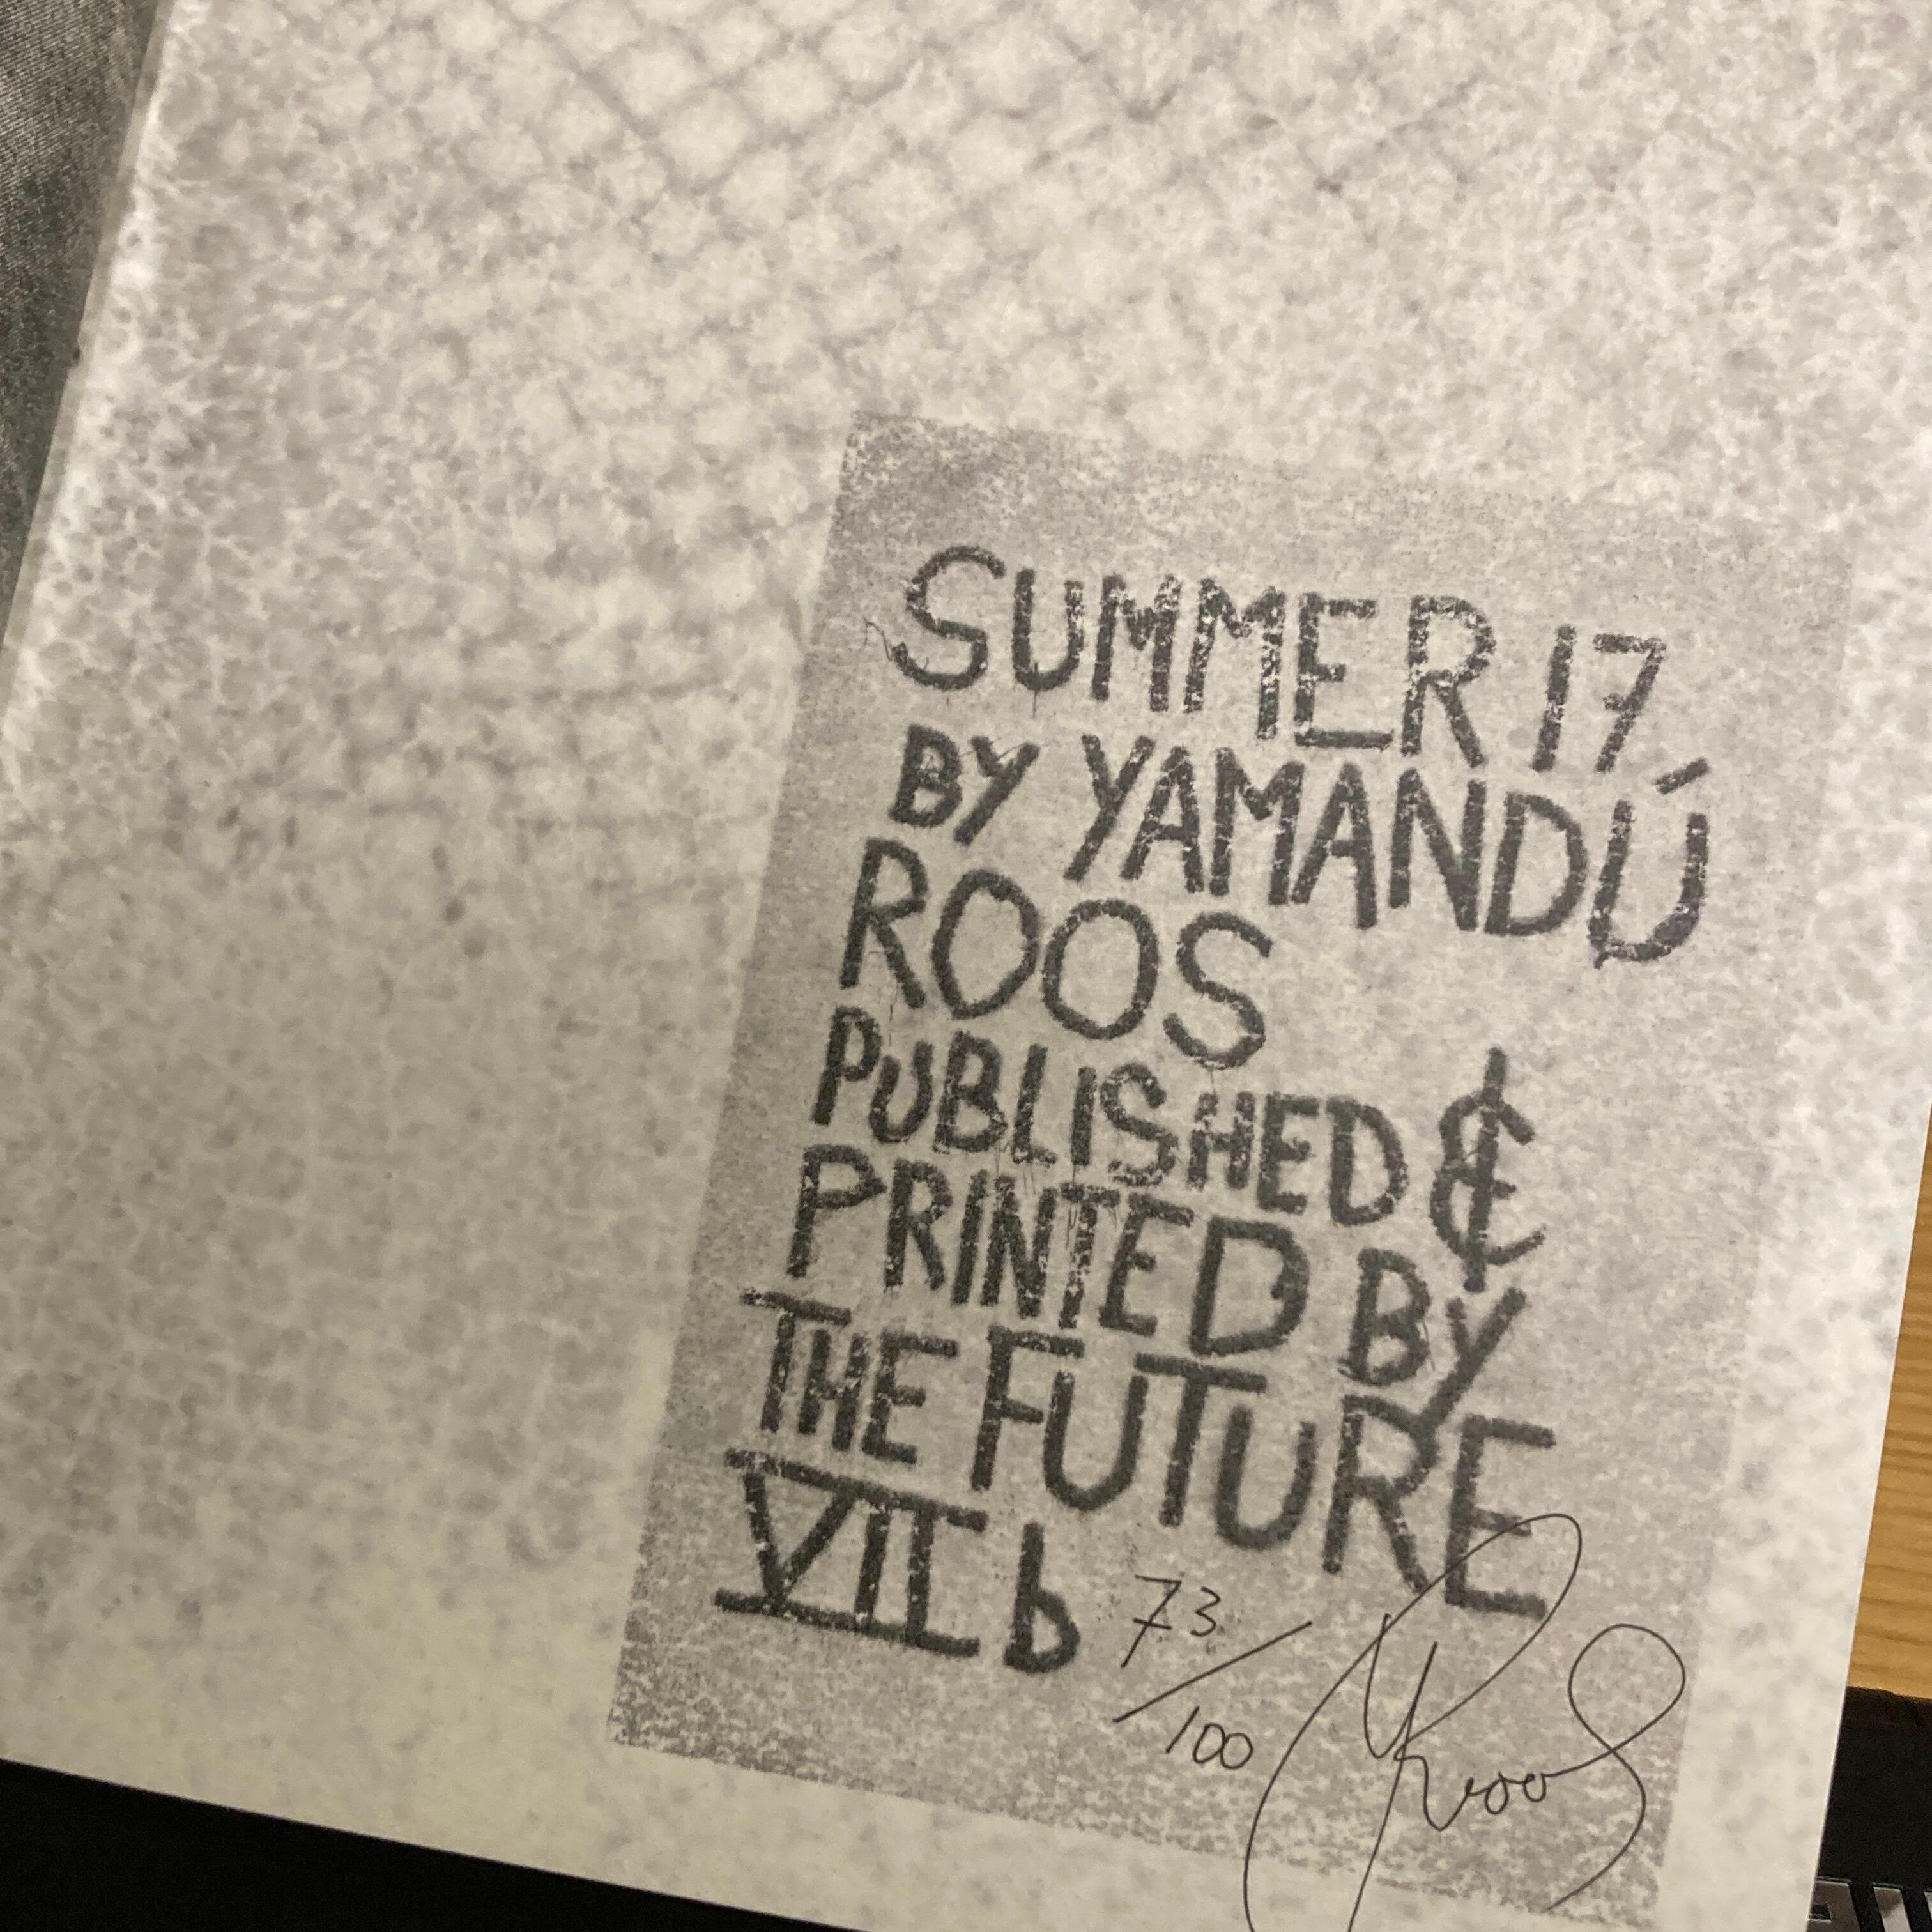 SUMMER 17
BY YAMANDÚ
ROOS
PUBLISHED &
PRINTED BY
THE FUTURE
VII b
73/100
YRoos